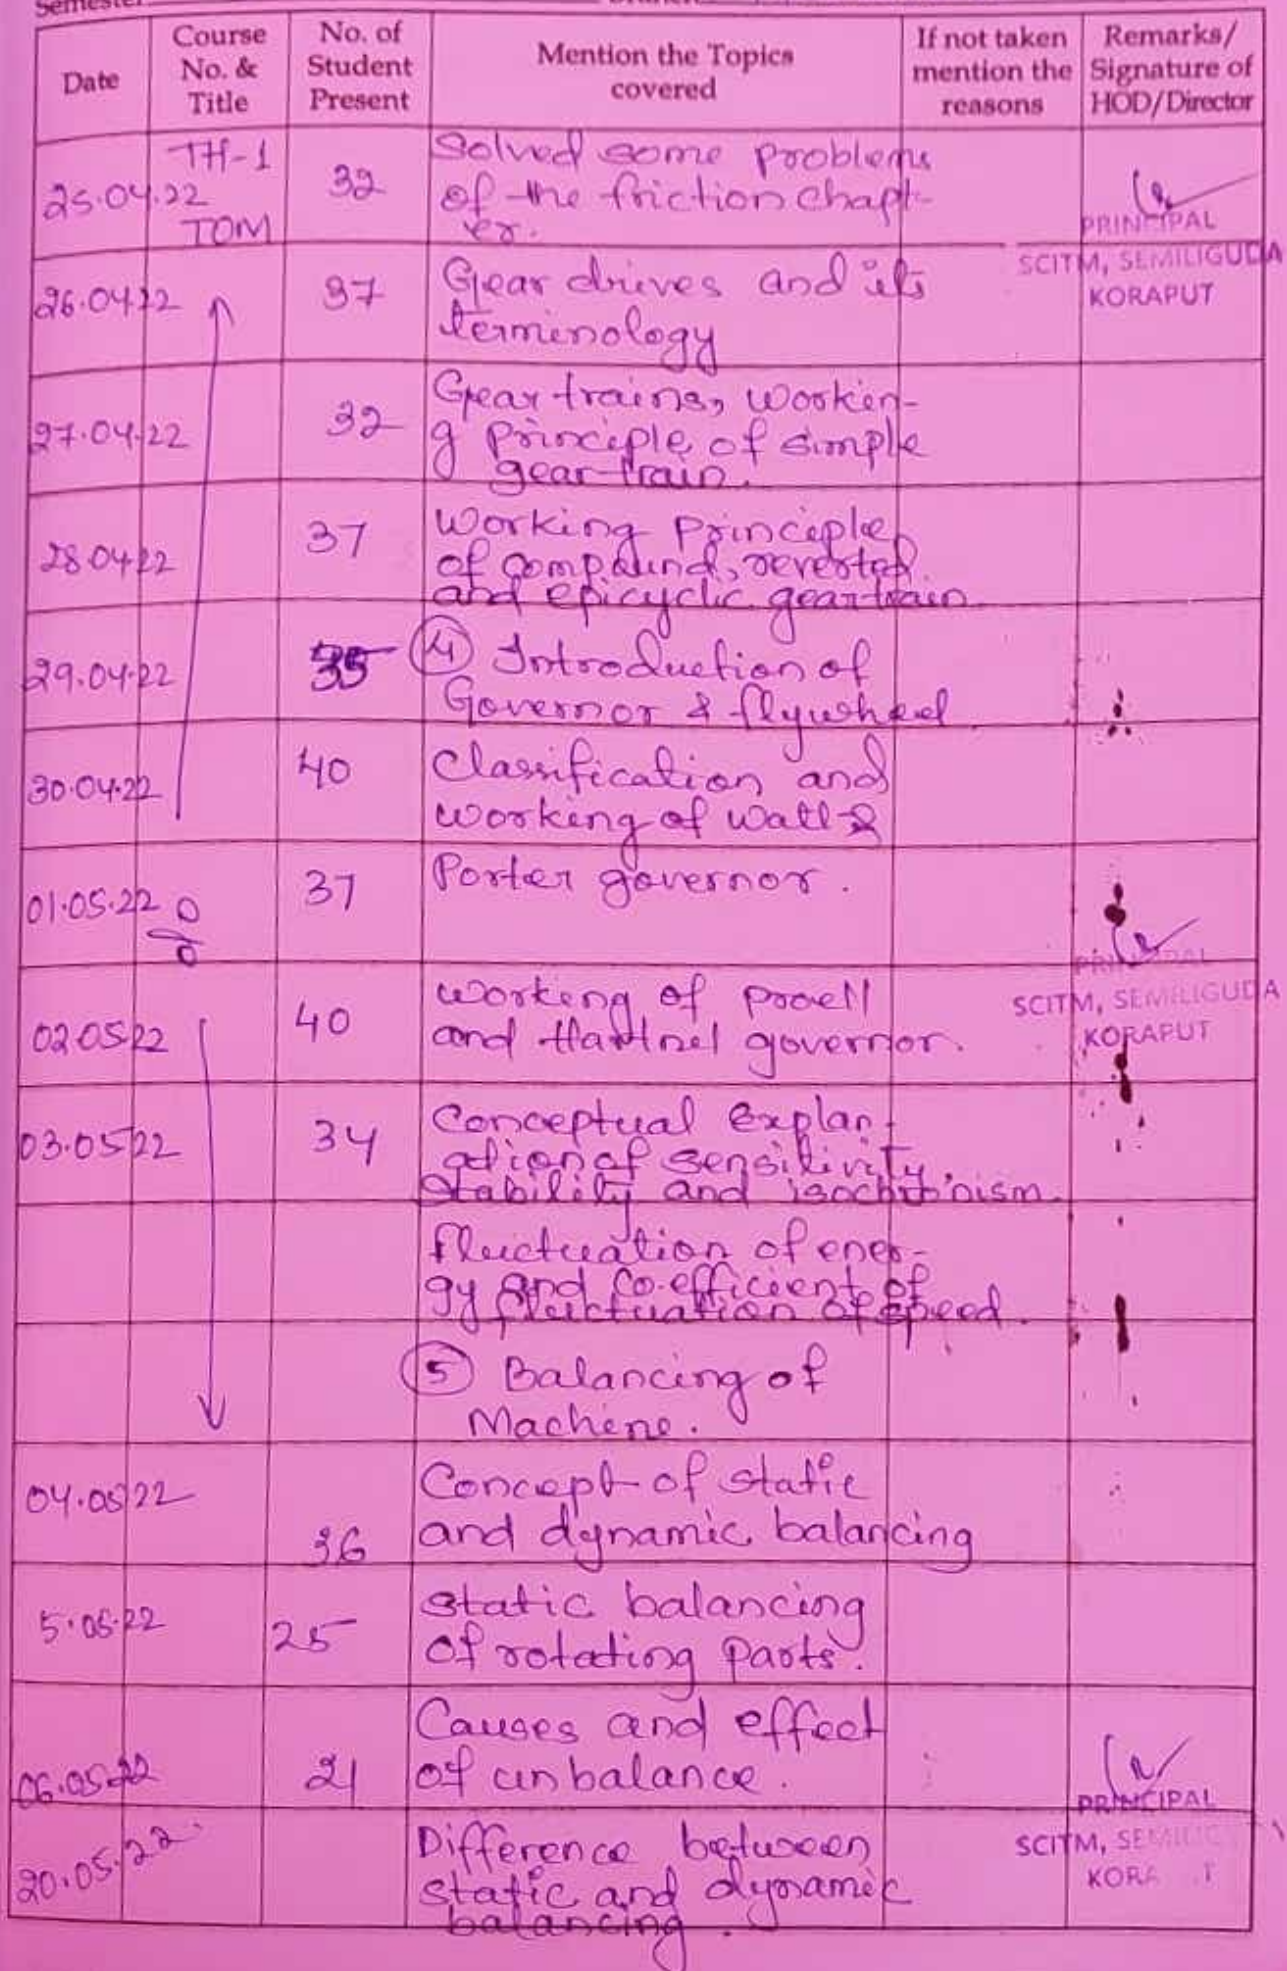 Semester
Date
Course No. & Title
No. of Student Present
Mention the Topics covered
If not taken mention the reasons
Remarks/ Signature of HOD/Director
25.04.22
TH-1
TOM
32
Solved some problems
of the friction chapt-
er.
PRINCIPAL
SCITM, SEMILIGUDA
KORAPUT
26.04.22
37
Gear drives and its
terminology
27.04.22
32
Gear trains, workin-
g principle of simple
gear train.
28.04.22
37
Working principle
of compound, reverted
and epicyclic gear train
29.04.22
35
④ Introduction of
Governor & flywheel
30.04.22
40
Classification and
working of watt &
01.05.22
37
Porter governor.
PRINCIPAL
SCITM, SEMILIGUDA
KORAPUT
02.05.22
40
Working of proell
and Hartnel governor.
03.05.22
34
Conceptual Explan-
ation of sensitivity,
stability and isochronism.
Fluctuation of ener-
gy and co-efficient of
fluctuation of speed.
⑤ Balancing of
Machine.
04.05.22
36
Concept of static
and dynamic balancing
5.05.22
25
Static balancing
of rotating parts.
06.05.22
21
Causes and effect
of unbalance.
PRINCIPAL
SCITM,
20.05.22.
Difference between
static and dynamic
balancing.